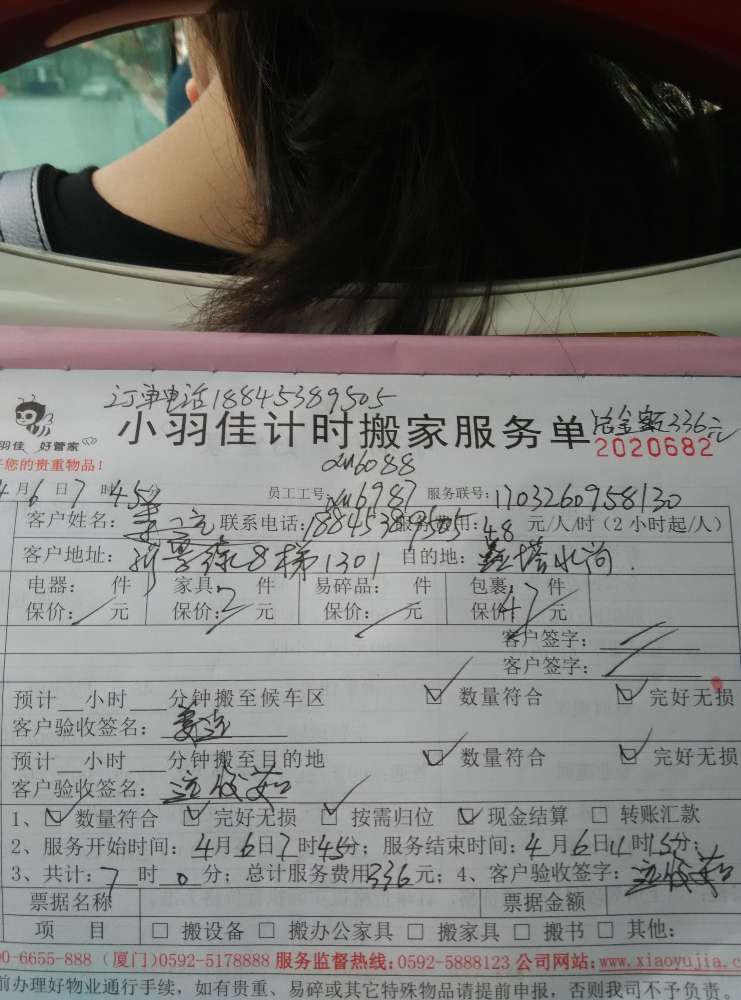 订单电话18845389505
羽佳 好管家
小羽佳计时搬家服务单 总金额336元
2020682
您的贵重物品!
xm6088
4月6日7时45分 员工工号:xm6987 服务联号:1703260958130
客户姓名: 联系电话:18845389505 服务费用:48元/人/时(2小时起/人)
客户地址: 8梯1301 目的地:
电器: 件 家具: 2 件 易碎品: 件 包裹: 47 件
保价: 元 保价: 元 保价: 元 保价: 元
客户签字:
客户签字:
预计__小时___分钟搬至候车区 ☑ 数量符合 ☑ 完好无损
客户验收签名:
预计__小时___分钟搬至目的地 ☑ 数量符合 ☑ 完好无损
客户验收签名:
1、☑ 数量符合 ☑ 完好无损 ☑ 按需归位 ☑ 现金结算 □ 转账汇款
2、服务开始时间:4月6日7时45分;服务结束时间:4月6日11时15分;
3、共计:7时0分;总计服务费用336元;4、客户验收签字:
票据名称 票据金额
项 目 □ 搬设备 □ 搬办公家具 □ 搬家具 □ 搬书 □ 其他:
00-6655-888 (厦门)0592-5178888 服务监督热线:0592-5888123 公司网站:www.xiaoyujia.c
前办理好物业通行手续,如有贵重、易碎或其它特殊物品请提前申报,否则我司不予负责。